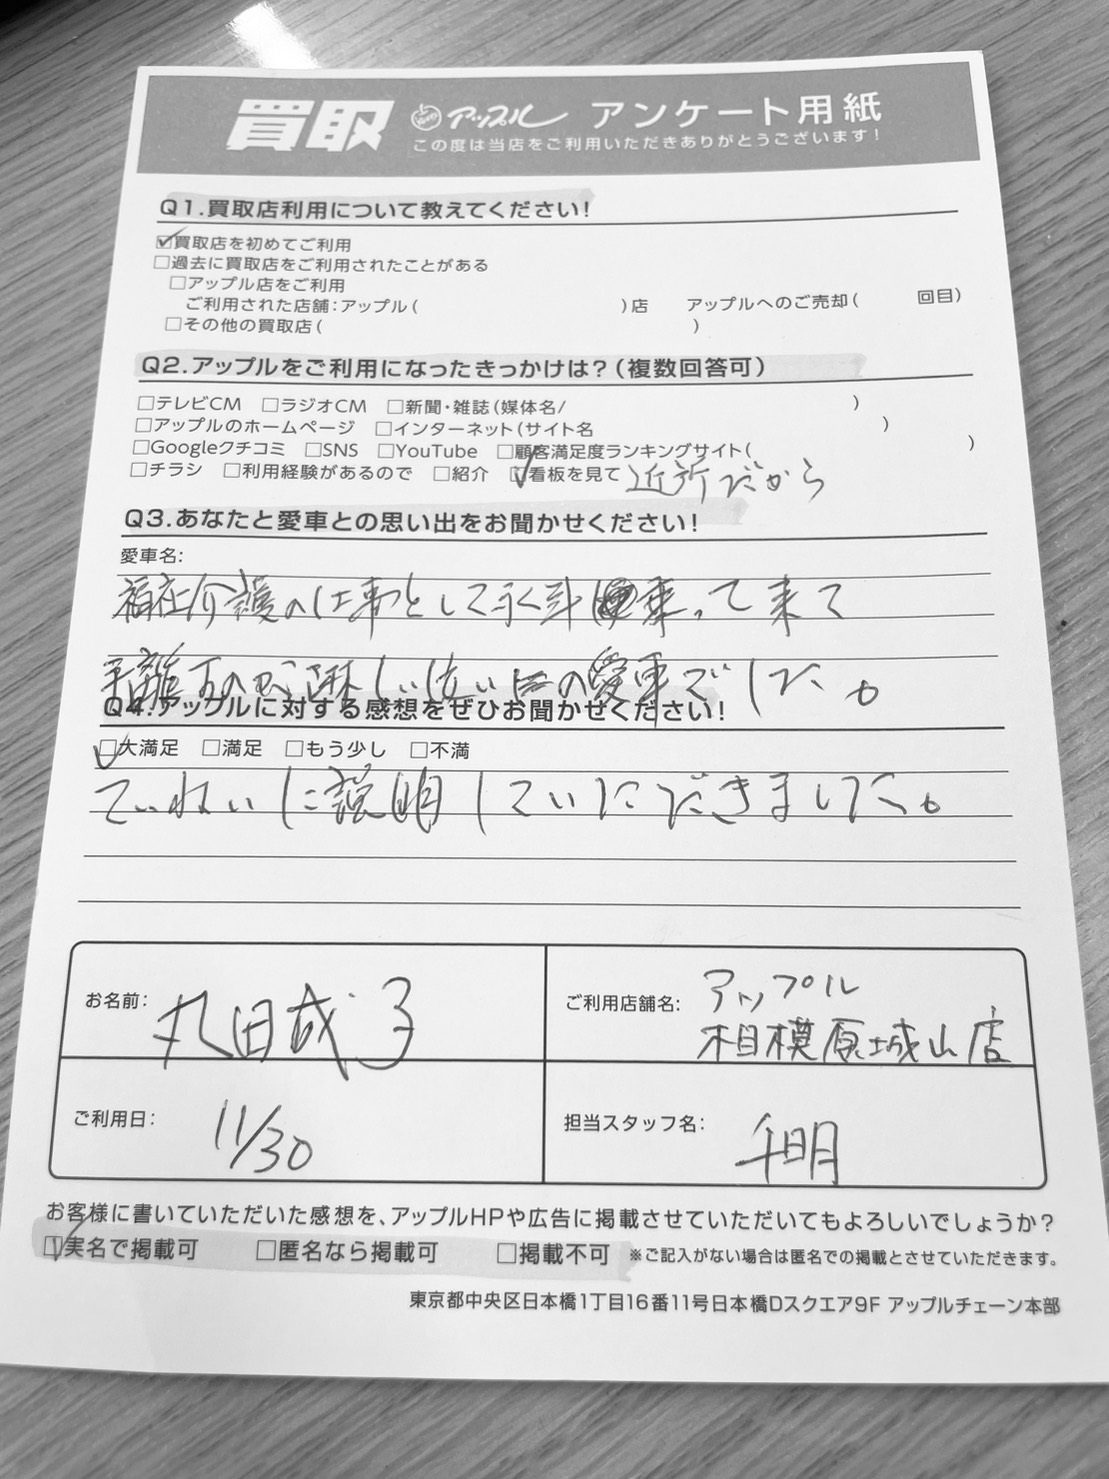 買取 アップル アンケート用紙
この度は当店をご利用いただきありがとうございます！
Q1.買取店利用について教えてください！
☑買取店を初めてご利用
□過去に買取店をご利用されたことがある
□アップル店をご利用
ご利用された店舗：アップル( )店 アップルへのご売却( 回目)
□その他の買取店( )
Q2.アップルをご利用になったきっかけは？(複数回答可)
□テレビCM □ラジオCM □新聞・雑誌(媒体名/ )
□アップルのホームページ □インターネット(サイト名 )
□Googleクチコミ □SNS □YouTube □顧客満足度ランキングサイト( )
□チラシ □利用経験があるので □紹介 ☑看板を見て 近所だから
Q3.あなたと愛車との思い出をお聞かせください！
愛車名:
福祉介護の仕事として永年 乗って来て
手離すのが淋しい の愛車でした。
Q4.アップルに対する感想をぜひお聞かせください！
☑大満足 □満足 □もう少し □不満
ていねいに説明していただきました。
お名前: 丸田成子
ご利用店舗名: アップル
相模原城山店
ご利用日: 11/30
担当スタッフ名: 千明
お客様に書いていただいた感想を、アップルHPや広告に掲載させていただいてもよろしいでしょうか？
☑実名で掲載可 □匿名なら掲載可 □掲載不可 ※ご記入がない場合は匿名での掲載とさせていただきます。
東京都中央区日本橋1丁目16番11号日本橋Dスクエア9F アップルチェーン本部